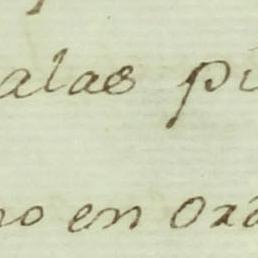 alas pi
no en ora